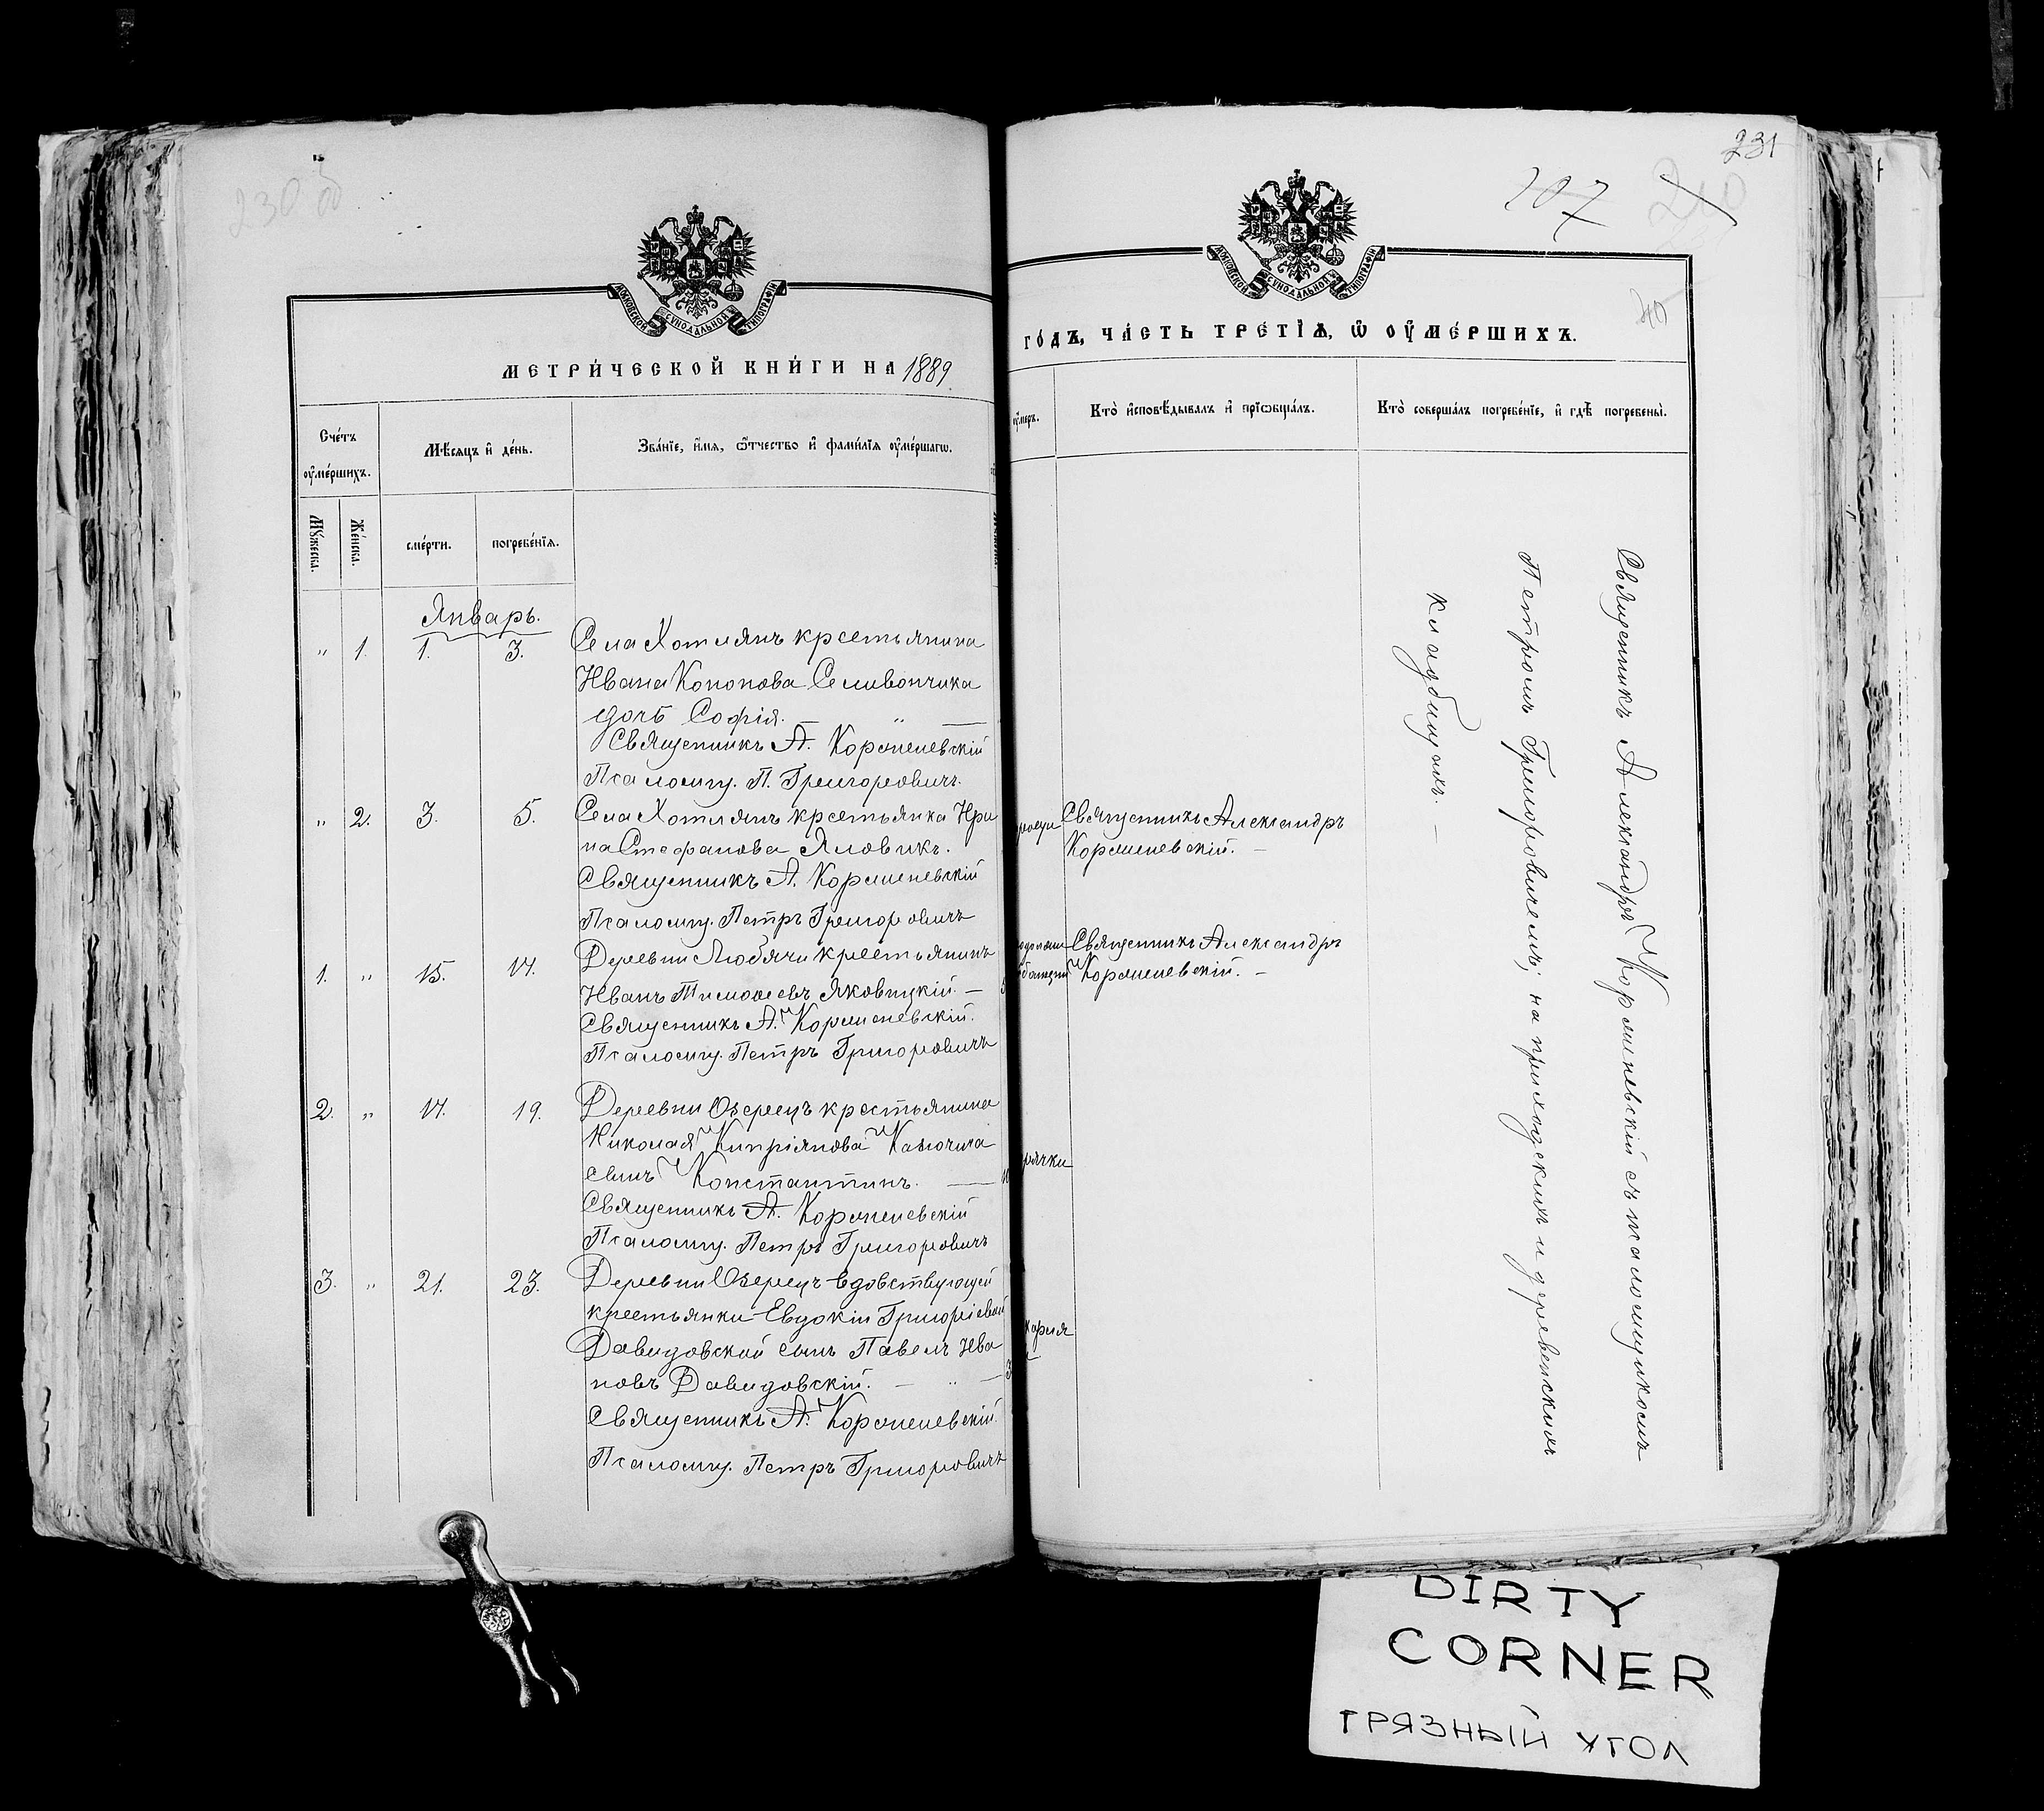 230 об
МОСКОВСКОЙ СѴНОДАЛЬНОЙ ТИПОГРАФІИ
МЕТРИ́ЧЕСКОЙ КНИ́ГИ НА 1889
Сче́тъ оу҆ме́ршихъ.
Мѣ́сяцъ и҆ де́нь.
Зва́нїе, и҆́мя, ѻ҆́тчество и҆ фами́лїя оу҆ме́ршагѡ.
Мꙋ́жеска.
Же́нска.
сме́рти.
погребе́нїя.
Январь.
" 1. 1. 3. Села Хотлянъ крестьянина
Ивана Кононова Селивончика
дочь София. "
Священникъ А. Корженевскій
Псаломщ. П. Григоровичъ.
" 2. 3. 5. Села Хотлянъ крестьянка Ири
на Стефанова Яловикъ.
Священникъ А. Корженевскій
Псаломщ. Петръ Григоровичъ
1. " 15. 17. Деревни Любячи крестьянинъ
Иванъ Тимоѳеевъ Яковицкій. —
Священникъ А. Корженевскій.
Псаломщ. Петръ Григоровичъ
2. " 17. 19. Деревни Озерецъ крестьянина
Николая Кипріянова Казючица
сынъ Константинъ. —
Священникъ А. Корженевскій
Псаломщ. Петръ Григоровичъ
3. " 21. 23. Деревни Озерецъ вдовствующей
крестьянки Евдокіи Григоріевой
Давидовской сынъ Павелъ Ива
новъ Давидовскій. — " —
Священникъ А. Корженевскій.
Псаломщ. Петръ Григоровичъ
231
207
210
40
МОСКОВСКОЙ СѴНОДАЛЬНОЙ ТИПОГРАФІИ
ГО́ДЪ, ЧА́СТЬ ТРЕ́ТЇѦ, Ѡ҆ ОУ҆МЕ́РШИХЪ.
оу҆́меръ.
Кто̀ и҆сповѣ́дывалъ и҆ прїѡбща́лъ.
Кто̀ соверша́лъ погребе́нїе, и҆ гдѣ̀ погребены̀.
Священникъ Александръ
Корженевскій. —
Священникъ Александръ
Корженевскій. —
рячки
Священникъ Александръ Корженевскій съ псаломщикомъ
Петромъ Григоровичемъ; на приходскихъ и деревенскихъ
кладбищахъ. —
DIRTY
CORNER
ГРЯЗНЫЙ УГОЛ